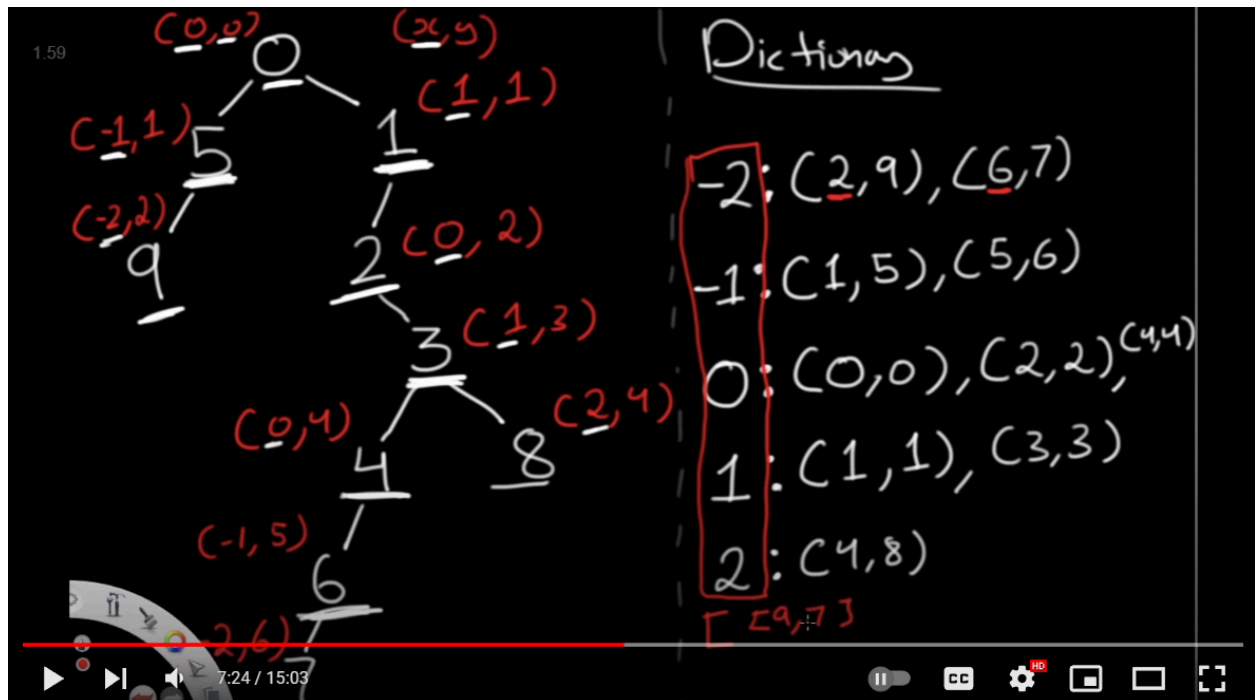 1.59
(0,0)
0
(x,y)
(1,1)
(-1,1)
5
1
(-2,2)
9
2
(0,2)
3
(1,3)
(0,4)
4
8
(2,4)
(-1,5)
6
-2,6)
7
Dictionary
-2: (2,9), (6,7)
-1: (1,5), (5,6)
0: (0,0), (2,2), (4,4)
1: (1,1), (3,3)
2: (4,8)
[ [9,7]
7:24 / 15:03
CC
HD